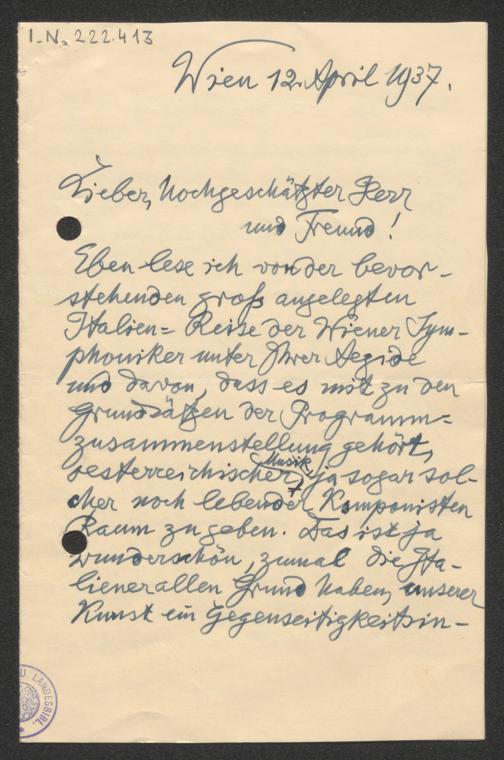 I.N. 222.413
Wien 12. April 1937.
Lieber, hochgeschätzter Herr
und Freund!
Eben lese ich von der bevor-
stehenden groß angelegten
Italien= Reise der Wiener Sym-
phoniker unter Ihrer Aegide
und davon, dass es mit zu den
Grundsätzen der Programm=
zusammenstellung gehört,
Musik
oesterreichischer, ja sogar sol-
cher noch lebender Komponisten
Raum zu geben. Das ist ja
wunderschön, zumal die Ita-
liener allen Grund haben, unserer
Kunst ein Gegenseitigkeitsin-
LANDESBIBL.